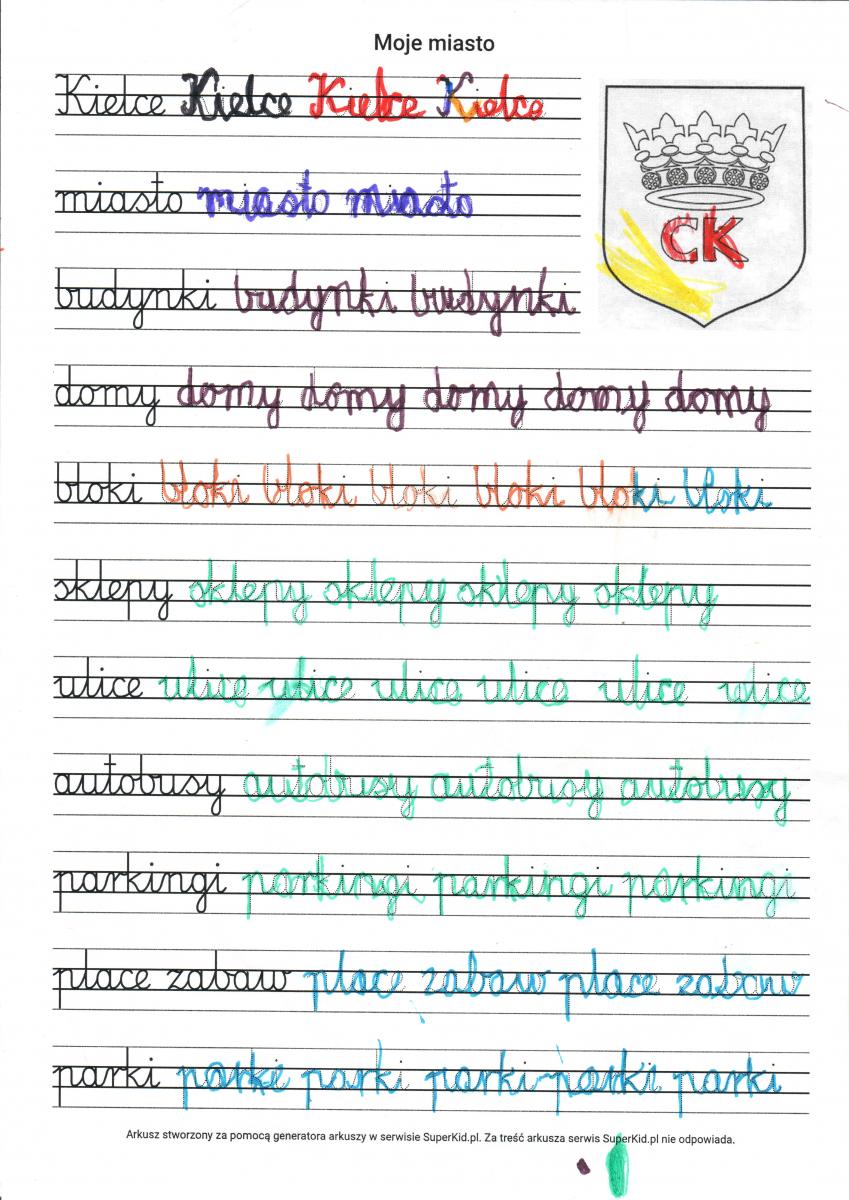 Moje miasto
Kielce Kielce Kielce Kielce
CK
miasto miasto miasto
budynki budynki budynki
domy domy domy domy domy domy
bloki bloki bloki bloki bloki bloki bloki
sklepy sklepy sklepy sklepy sklepy
ulice ulice ulice ulice ulice ulice ulice
autobusy autobusy autobusy autobusy
parkingi parkingi parkingi parkingi
place zabaw place zabaw place zabaw
parki parki parki parki parki parki
Arkusz stworzony za pomocą generatora arkuszy w serwisie SuperKid.pl. Za treść arkusza serwis SuperKid.pl nie odpowiada.